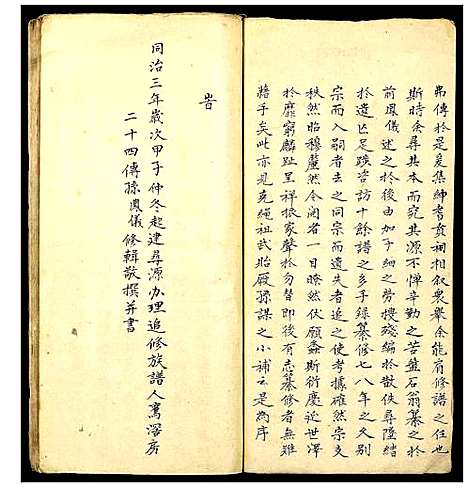 弗傳於是爰集紳耆貢祠相叙衆舉余能肩修譜之任也
斯時余尋其本而究其源不憚辛勤之苦盤石翁纂之於
前鳳儀述之於後由加子細之勞搜殘編於散佚尋墜緒
於遺亡足跋咨訪十餘譜之多手錄纂修七八年之久别
宗而入嗣者去之同宗而遺失者追之使考據確然宗支
秩然昭穆釐然令閱者一目瞭然伏願螽斯衍慶延世澤
於靡窮麟趾呈祥振家聲於勿替即後有志纂修者無難
藉手矣此亦見克繩祖武貽厥孫謀之小補云是為序
旹
同治三年歲次甲子仲冬起建尋源办理追修族譜人寓滘房
二十四傳孫鳳儀修輯敬撰并書